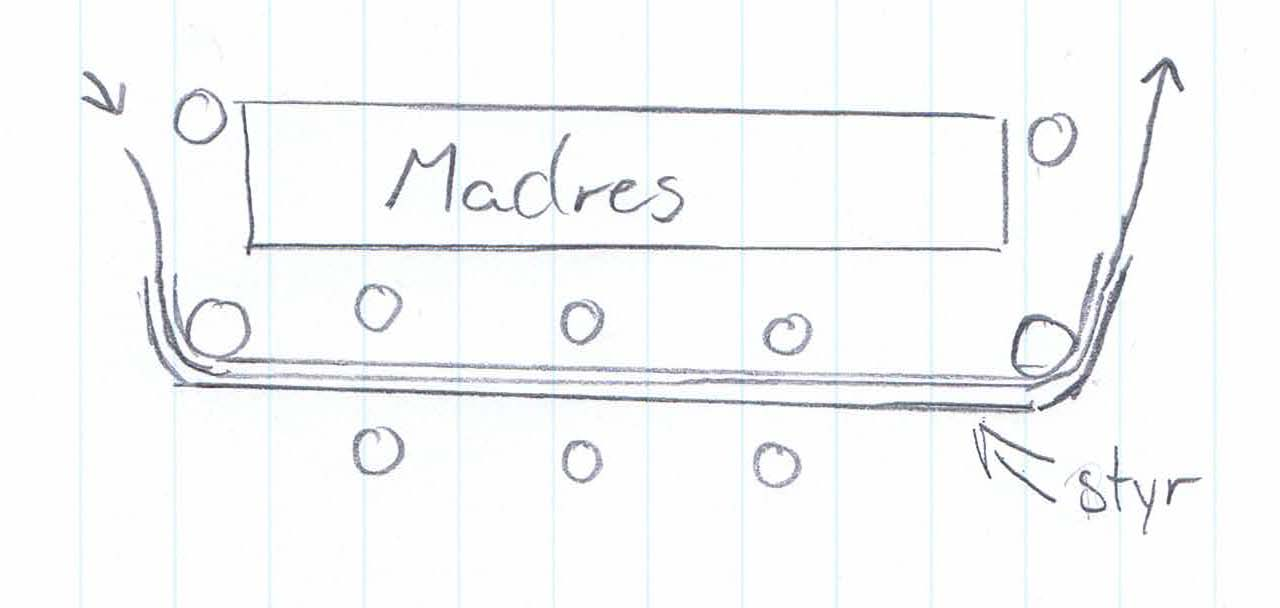 Madres
styr